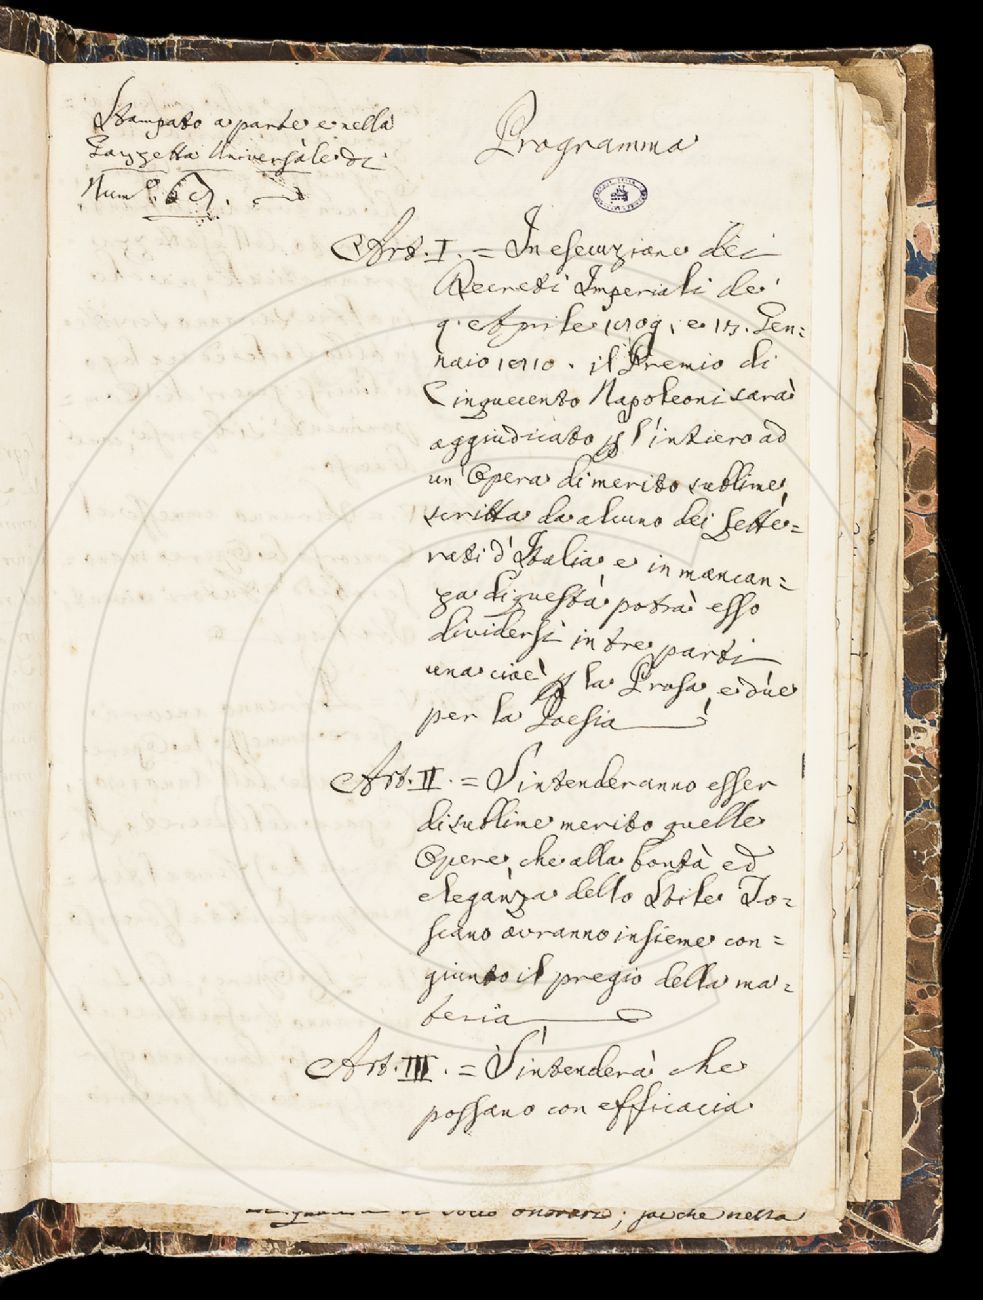 Stampato a parte e nella
Gazzetta Universale di
Num.
Programma
Art. I. = In esecuzione dei
Decreti Imperiali de'
9. Aprile 1809, e 13. Gen=
naio 1810. il Premio di
Cinquecento Napoleoni sarà
aggiudicato p l'intiero ad
un' Opera di merito sublime
scritta da alcuno dei Lette=
rati d'Italia e in mancan=
za di questa potrà esso
dividersi in tre parti
una cioè p la Prosa, e due
per la Poesia
Art. II. = S'intenderanno esser
di sublime merito quelle
Opere che alla bontà ed
eleganza dello Stile To=
scano avranno insieme con=
giunto il pregio della ma=
teria
Art. III. = S'intenderà che
possano con efficacia
onorario; poiche nella